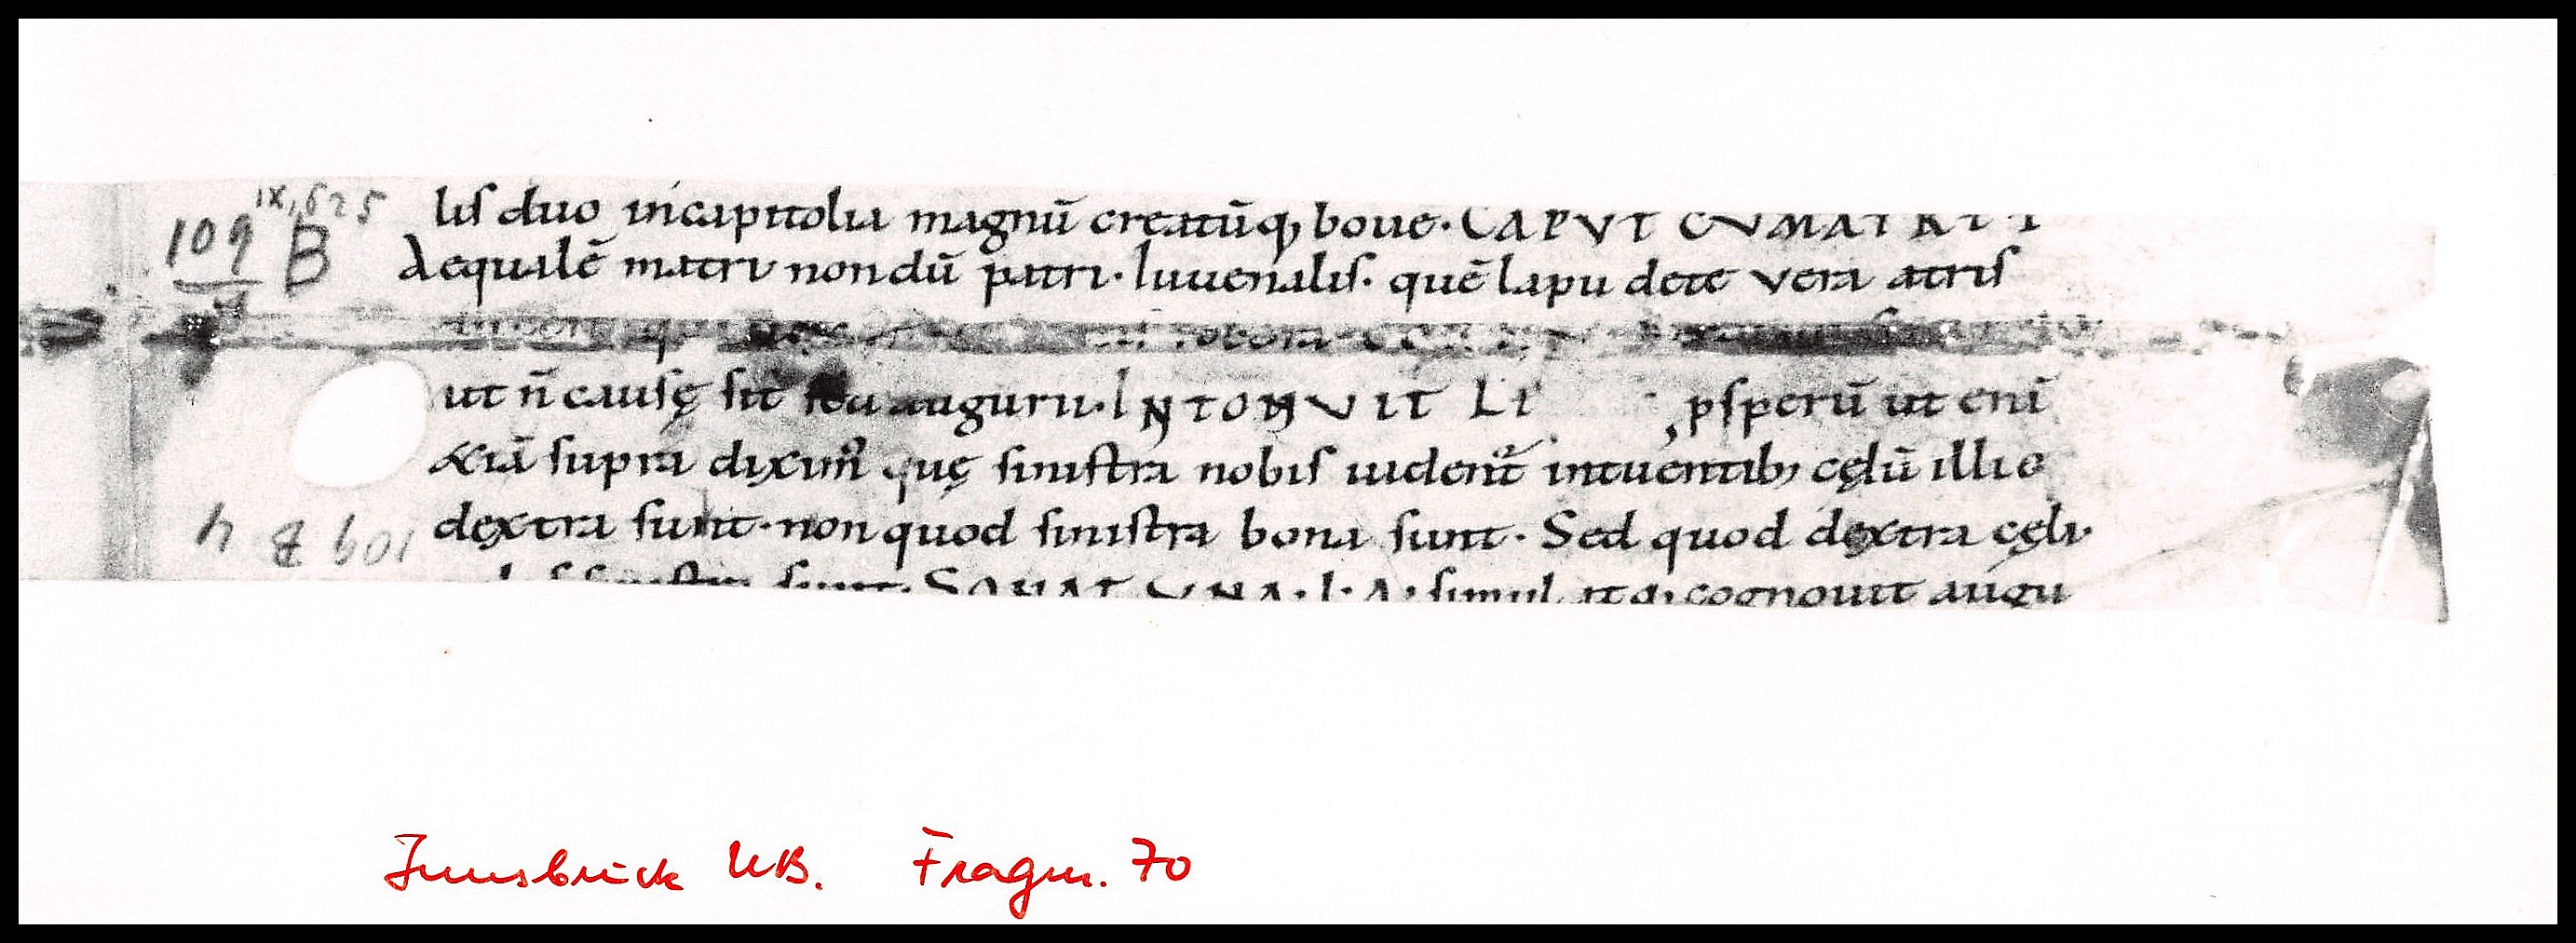 IX, 625
109 B
lis duo incapitolia magnū creatūq; boue. CAPVT CVMATRI
Aequalē matri nondū patri. Iuuenalis. quē lapu dete vera atris
ut n̄ causę sit augurii. INTONVIT LI psperū ut eni
xiā supra diximꝰ quę sinistra nobis uident᷑ intuentib; cęlū illic
dextra sunt. non quod sinistra bona sunt. Sed quod dextra cęli.
sunt. SONAT VNA. L. A. simul itaq; cognouit augu
109 B 4
Innsbruck UB. Fragm. 70